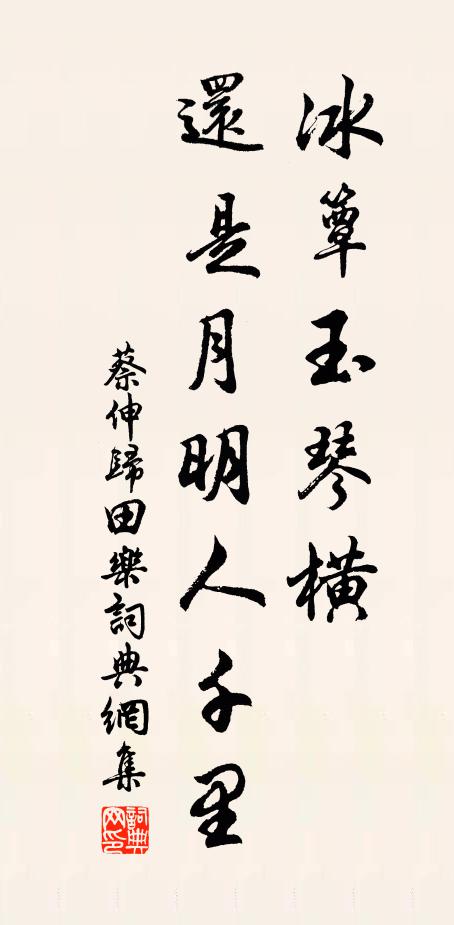 冰簟玉琴橫
還是月明人千里
蔡伸歸田樂詞典網集
詞典網印